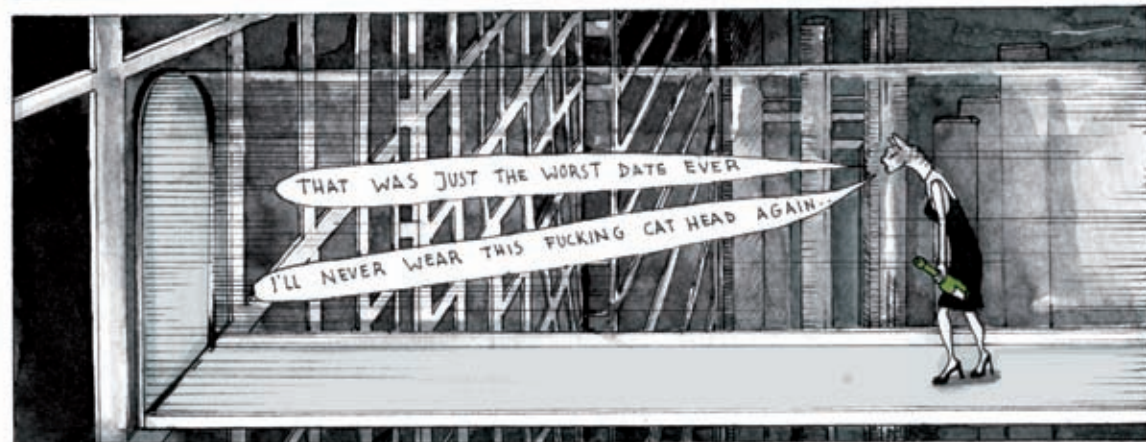 THAT WAS JUST THE WORST DATE EVER
I'LL NEVER WEAR THIS FUCKING CAT HEAD AGAIN..